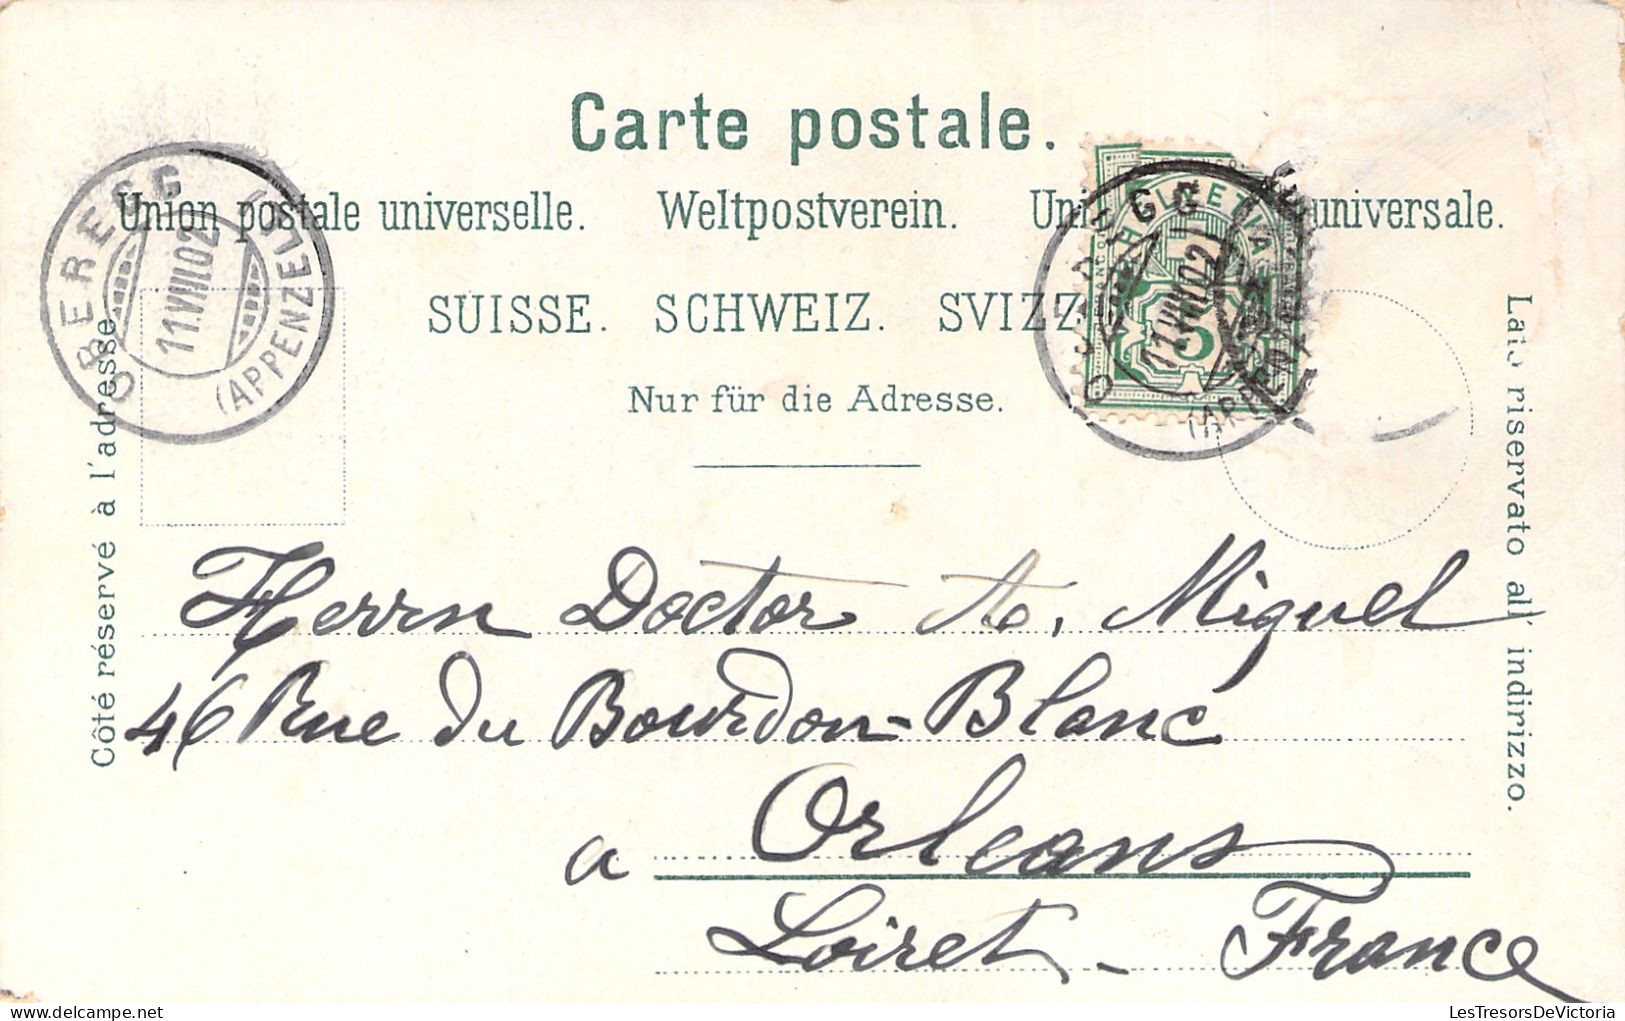 Carte postale.
Union postale universelle. Weltpostverein. universale.
SUISSE. SCHWEIZ.
Nur für die Adresse.
Côté réservé à l'adresse.
Lato riservato all' indirizzo.
OBEREGG
11.VIII.02
(APPENZELL)
HELVETIA
5
11.VIII.02
Herrn Doctor A. Miguel
46 Rue du Bourdon-Blanc
a Orleans
Loiret - France
LesTresorsDeVictoria